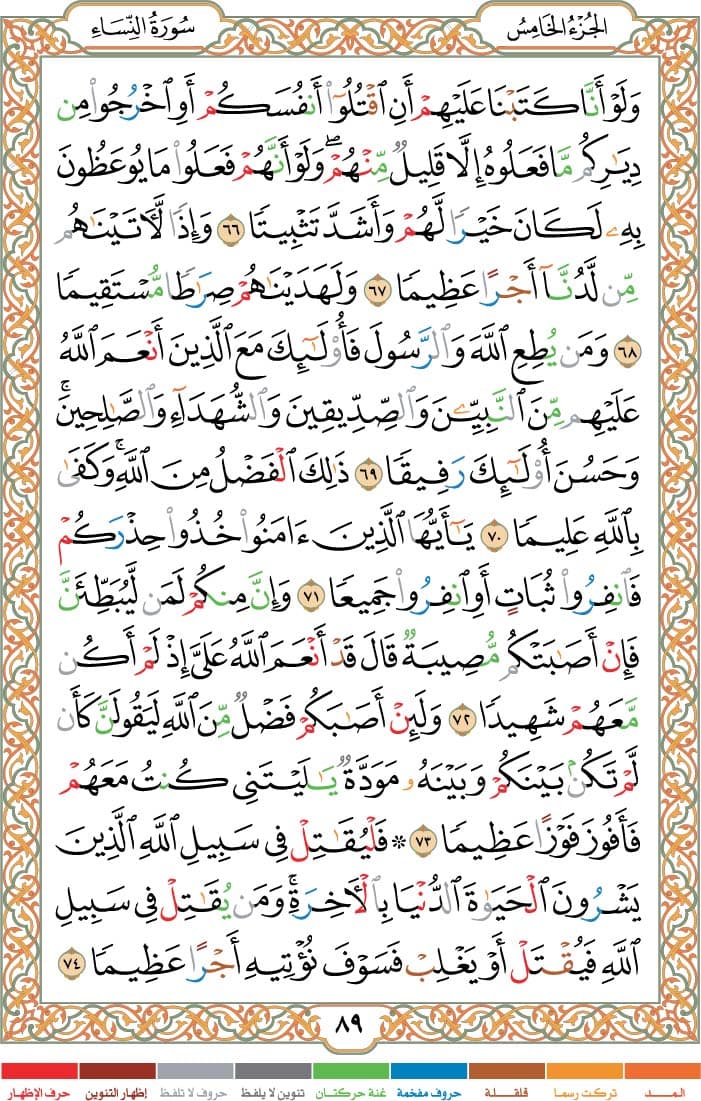 الجُزْءُ الخَامِسُ
سُورَةُ النِّسَاءِ
وَلَوْ أَنَّا كَتَبْنَا عَلَيْهِمْ أَنِ ٱقْتُلُوٓا۟ أَنفُسَكُمْ أَوِ ٱخْرُجُوا۟ مِن
دِيَـٰرِكُم مَّا فَعَلُوهُ إِلَّا قَلِيلٌ مِّنْهُمْ ۖ وَلَوْ أَنَّهُمْ فَعَلُوا۟ مَا يُوعَظُونَ
بِهِۦ لَكَانَ خَيْرًا لَّهُمْ وَأَشَدَّ تَثْبِيتًا ٦٦ وَإِذًا لَّـَٔاتَيْنَـٰهُم
مِّن لَّدُنَّآ أَجْرًا عَظِيمًا ٦٧ وَلَهَدَيْنَـٰهُمْ صِرَٰطًا مُّسْتَقِيمًا
٦٨ وَمَن يُطِعِ ٱللَّهَ وَٱلرَّسُولَ فَأُو۟لَـٰٓئِكَ مَعَ ٱلَّذِينَ أَنْعَمَ ٱللَّهُ
عَلَيْهِم مِّنَ ٱلنَّبِيِّـۧنَ وَٱلصِّدِّيقِينَ وَٱلشُّهَدَآءِ وَٱلصَّـٰلِحِينَ ۚ
وَحَسُنَ أُو۟لَـٰٓئِكَ رَفِيقًا ٦٩ ذَٰلِكَ ٱلْفَضْلُ مِنَ ٱللَّهِ ۚ وَكَفَىٰ
بِٱللَّهِ عَلِيمًا ٧٠ يَـٰٓأَيُّهَا ٱلَّذِينَ ءَامَنُوا۟ خُذُوا۟ حِذْرَكُمْ
فَٱنفِرُوا۟ ثُبَاتٍ أَوِ ٱنفِرُوا۟ جَمِيعًا ٧١ وَإِنَّ مِنكُمْ لَمَن لَّيُبَطِّئَنَّ
فَإِنْ أَصَـٰبَتْكُم مُّصِيبَةٌ قَالَ قَدْ أَنْعَمَ ٱللَّهُ عَلَىَّ إِذْ لَمْ أَكُن
مَّعَهُمْ شَهِيدًا ٧٢ وَلَئِنْ أَصَـٰبَكُمْ فَضْلٌ مِّنَ ٱللَّهِ لَيَقُولَنَّ كَأَن
لَّمْ تَكُنۢ بَيْنَكُمْ وَبَيْنَهُۥ مَوَدَّةٌ يَـٰلَيْتَنِى كُنتُ مَعَهُمْ
فَأَفُوزَ فَوْزًا عَظِيمًا ٧٣ ۞ فَلْيُقَـٰتِلْ فِى سَبِيلِ ٱللَّهِ ٱلَّذِينَ
يَشْرُونَ ٱلْحَيَوٰةَ ٱلدُّنْيَا بِٱلْـَٔاخِرَةِ ۚ وَمَن يُقَـٰتِلْ فِى سَبِيلِ
ٱللَّهِ فَيُقْتَلْ أَوْ يَغْلِبْ فَسَوْفَ نُؤْتِيهِ أَجْرًا عَظِيمًا ٧٤
٨٩
المـــد تركت رسما قلقـلة حروف مفخمة غنة حركتان تنوين لا يلفظ حروف لا تلفظ إظهار التنوين حرف الإظهار